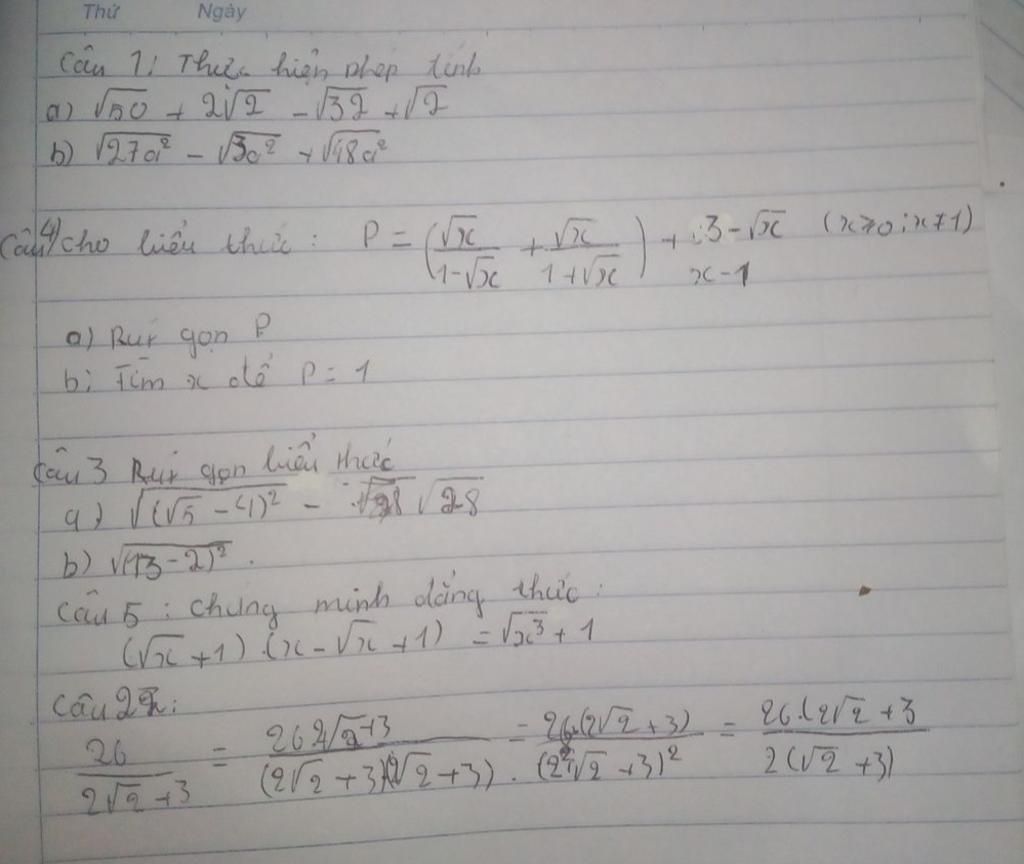 Thứ Ngày
Câu 1: Thực hiện phép tính
a) √50 + 2√2 - √32 + √2
b) √27a² - √3a² + √48a²
Câu 4) cho biểu thức: P = (√x/(1-√x) + √x/(1+√x)) + (3-√x)/(x-1) (x≥0; x≠1)
a) Rút gọn P
b) Tìm x để P = 1
Câu 3 Rút gọn biểu thức
a) √(√5 - 4)² - √28
b) √(√3 - 2)².
Câu 5: Chứng minh đẳng thức:
(√x + 1).(x - √x + 1) = √x³ + 1
Câu 2:
26/(2√2 + 3) = 26.2√2+3/((2√2 + 3)(2√2 + 3)) = 26.(2√2 + 3)/(2√2 + 3)² = 26.(2√2 + 3/2(√2 + 3)